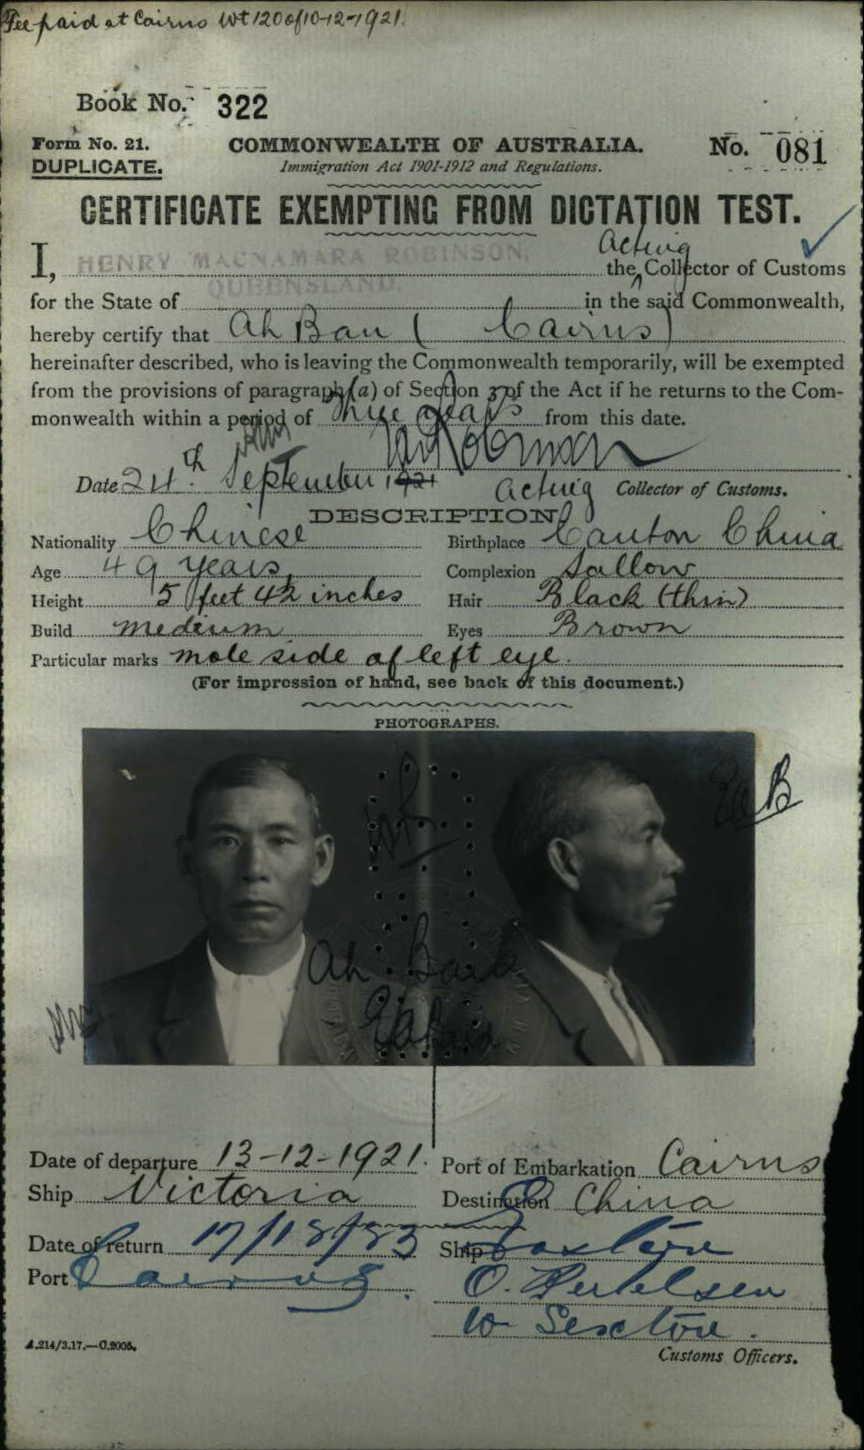 Fee paid at Cairns Wt 120 of 10-12-1921.
Book No. 322
Form No. 21. COMMONWEALTH OF AUSTRALIA. No. 081
DUPLICATE. Immigration Act 1901-1912 and Regulations.
CERTIFICATE EXEMPTING FROM DICTATION TEST.
I, HENRY MACNAMARA ROBINSON, the Acting Collector of Customs
for the State of QUEENSLAND. in the said Commonwealth,
hereby certify that Ah Bau ( Cairns)
hereinafter described, who is leaving the Commonwealth temporarily, will be exempted
from the provisions of paragraph (a) of Section 3 of the Act if he returns to the Com-
monwealth within a period of three years from this date.
Date 24th September 1921 Acting Collector of Customs.
DESCRIPTION
Nationality Chinese Birthplace Canton China
Age 49 years. Complexion Sallow
Height 5 feet 4½ inches Hair Black (thin)
Build medium Eyes Brown
Particular marks mole side of left eye.
(For impression of hand, see back of this document.)
PHOTOGRAPHS.
Ah Bau
Date of departure 13-12-1921. Port of Embarkation Cairns
Ship Victoria Destination China
Date of return Ship
Port Cairns.
W Sexton.
A.214/3.17.—C.2005. Customs Officers.